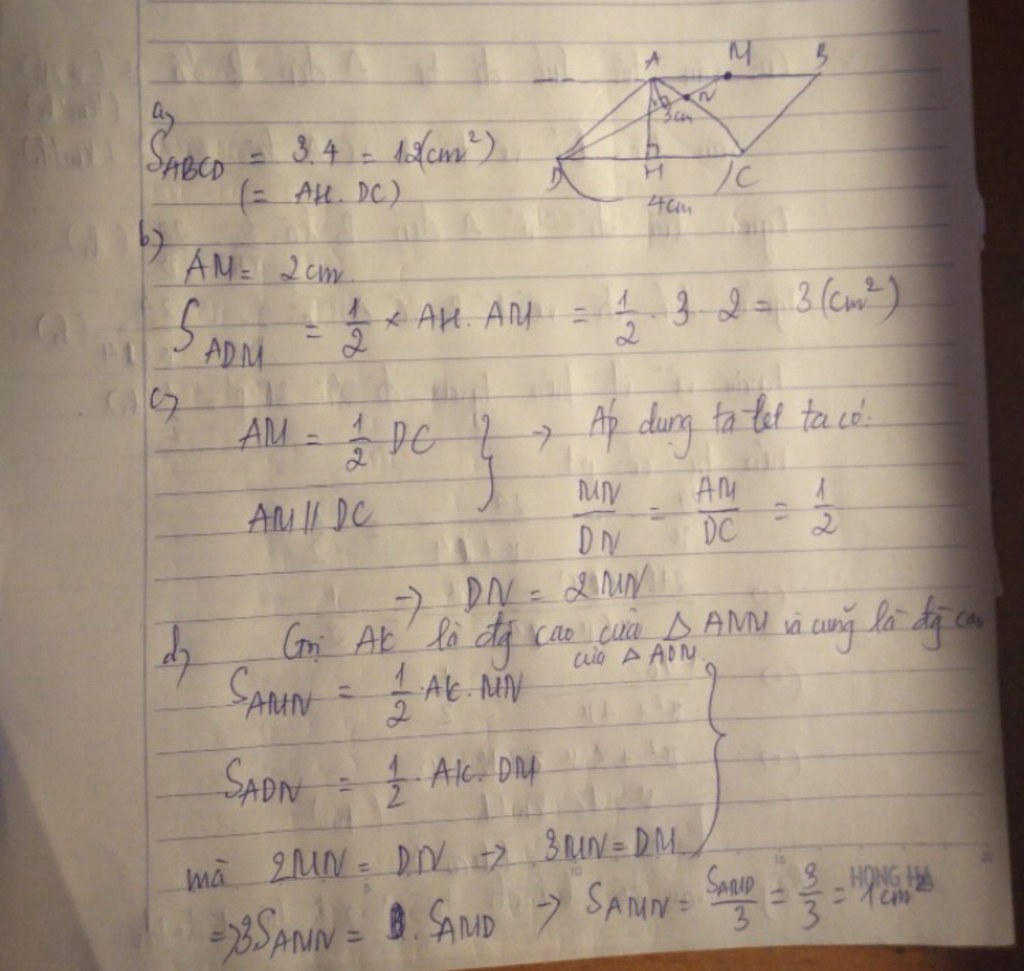 A M B
N
3cm
D H C
4cm
a)
S_ABCD = 3.4 = 12(cm²)
(= AH. DC)
b)
AM = 2cm.
S_ADM = 1/2 × AH. AM = 1/2 . 3 . 2 = 3 (cm²)
c)
AM = 1/2 DC } → Áp dụng ta let ta có:
AM // DC
MN/DN = AM/DC = 1/2
→ DN = 2MN
d) Gọi AK là đg cao của △ AMN và cũng là đg cao
của △ ADN.
S_AMN = 1/2 . AK. MN
S_ADN = 1/2 . AK. DM
mà 2MN = DN → 3MN = DM
=> 3S_AMN = S_AMD → S_AMN = S_AMD/3 = 3/3 = 1cm²
HONG HA